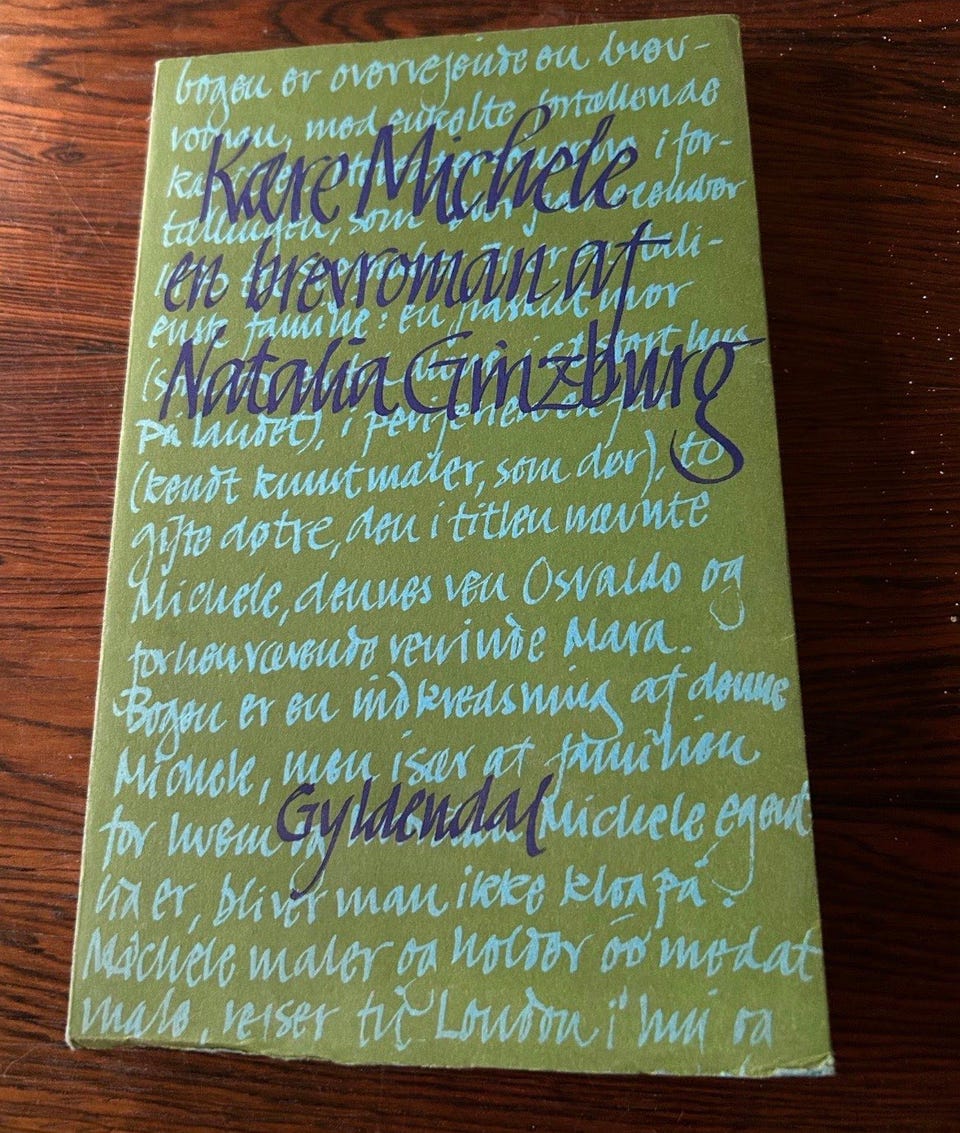 bogen er overvejende en brev-
roman, med enkelte fortællende
Kære Michele
i for-
tællingen, som
en brevroman af
itali-
ensk familie: en fraskilt mor
Natalia Ginzburg
et stort hus
på landet), i periferien en far
(kendt kunstmaler, som dør), to
gifte døtre, den i titlen nævnte
Michele, dennes ven Osvaldo og
forhenværende veninde Mara.
Bogen er en indkredsning af denne
Michele, men især af familien
Gyldendal
for hvem Michele egent-
lig er, bliver man ikke klog på.
Michele maler og holder op med at
male, rejser til London i huj og